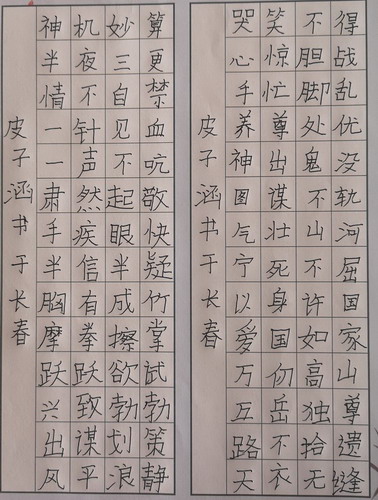 神机妙算
半夜三更
情不自禁
一针见血
一声不吭
肃然起敬
手疾眼快
半信半疑
胸有成竹
摩拳擦掌
跃跃欲试
兴致勃勃
出谋划策
风平浪静
皮子涵书于长春
哭笑不得
心惊胆战
手忙脚乱
养尊处优
神出鬼没
图谋不轨
气壮山河
宁死不屈
以身许国
爱国如家
万仞高山
五岳独尊
路不拾遗
天衣无缝
皮子涵书于长春